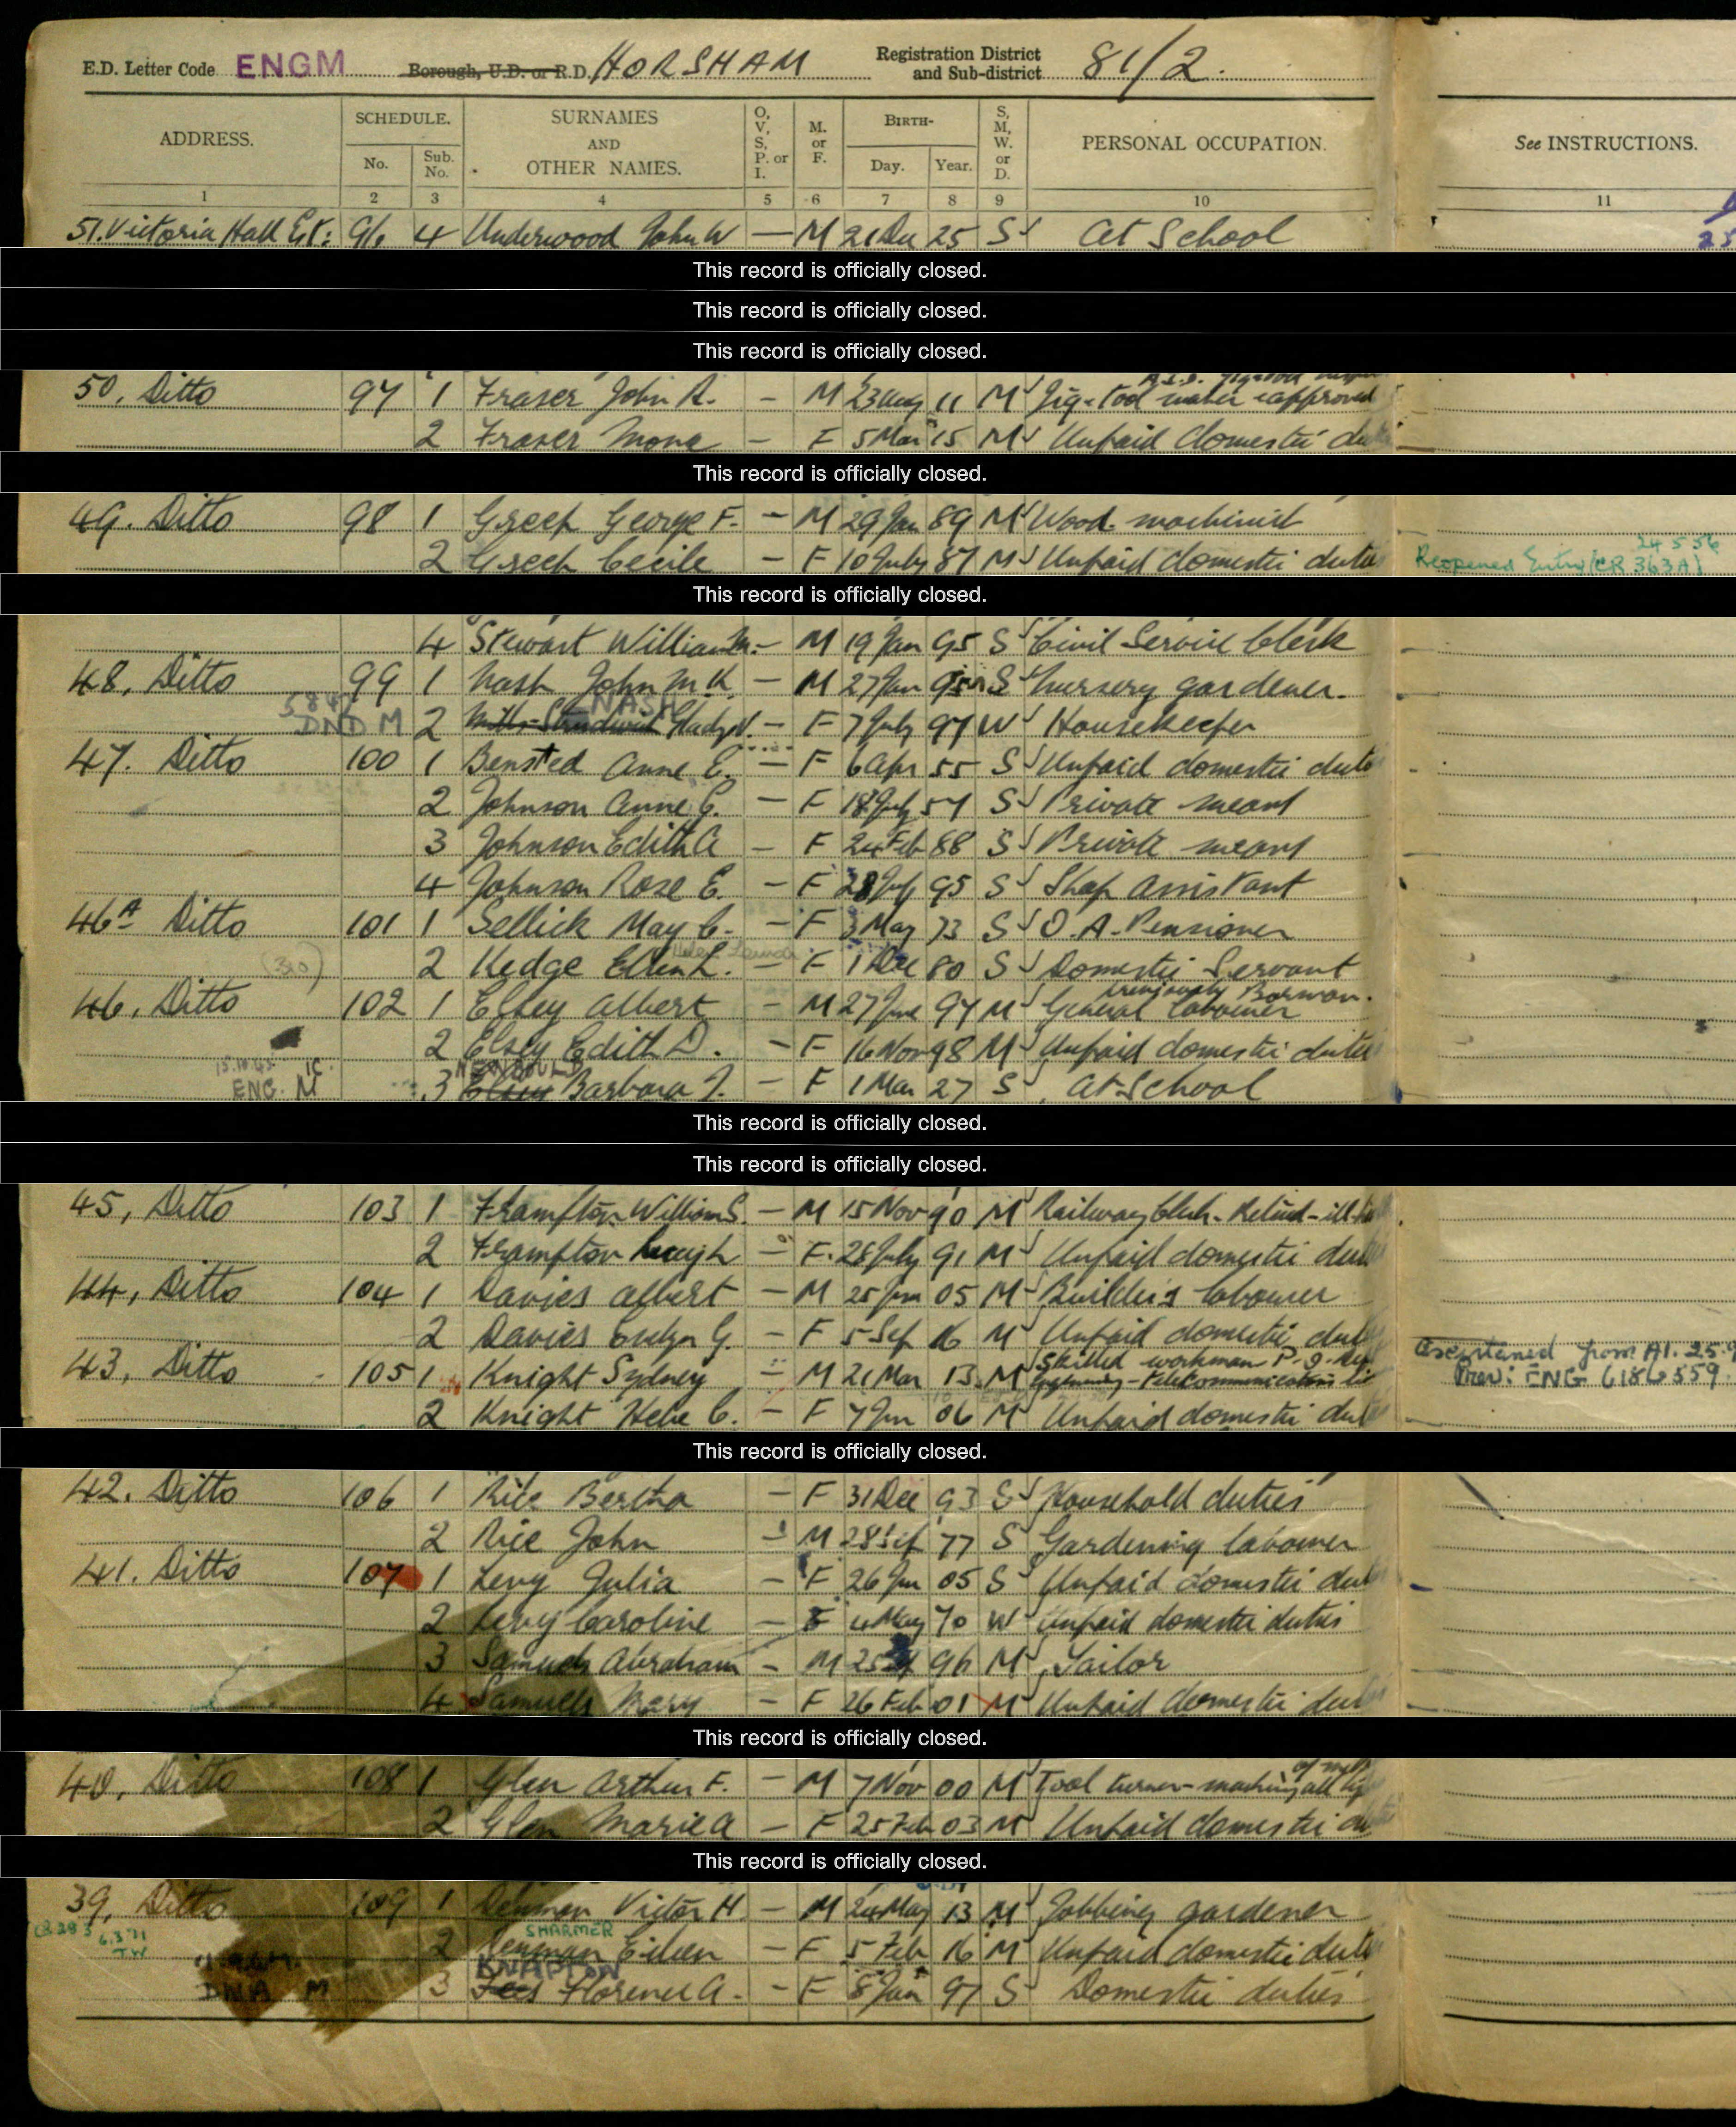 E.D. Letter Code ENGM Borough, U.D. or R.D. HORSHAM Registration District and Sub-district 81/2.
ADDRESS. SCHEDULE. No. Sub. No. SURNAMES AND OTHER NAMES. O, V, S, P. or I. M. or F. BIRTH- Day. Year. S, M, W. or D. PERSONAL OCCUPATION. See INSTRUCTIONS.
1 2 3 4 5 6 7 8 9 10 11
51. Victoria Hall Est: 96 4 Underwood John W — M 21 Dec 25 S At School
This record is officially closed.
This record is officially closed.
This record is officially closed.
50, Ditto 97 1 Fraser John A. - M 23 Aug 11 M Jig & Tool maker approved
2 Fraser Mona - F 5 Mar 15 M Unpaid domestic
This record is officially closed.
49. Ditto 98 1 Greef George F. - M 29 Jan 89 M Wood machinist
2 Greef Cecile - F 10 July 87 M Unpaid domestic duties Reopened Entry (CR 363A) 24 5 56
This record is officially closed.
4 Stewart William - M 19 Jan 95 S Civil Service Clerk
48, Ditto 99 1 Nash John M.K. - M 27 Jan S Nursery gardener.
DND M 2 NASH Gladys - F 7 July 97 W Housekeeper
47. Ditto 100 1 Bensted Anne E. - F 6 Apr 55 S Unpaid domestic duties
2 Johnson Anne G. - F 18 July 57 S Private means
3 Johnson Edith A - F 24 Feb 88 S Private means
4 Johnson Rose E. - F 28 July 95 S Shop Assistant
46A Ditto 101 1 Sellick May C. - F 3 May 73 S O.A. Pensioner
(310) 2 Kedge Ellen L. - F 1 Dec 80 S Domestic Servant
46, Ditto 102 1 Elsey Albert - M 27 June 94 M General labourer previously Barman.
2 Elsey Edith D. - F 16 Nov 98 M Unpaid domestic duties
ENG. M 3 Elsey Barbara J. - F 1 Mar 27 S At School
This record is officially closed.
This record is officially closed.
45, Ditto 103 1 Frampton William S. - M 15 Nov 90 M Railway Clerk - Retired
2 Frampton - F 28 July 91 M Unpaid domestic
44, Ditto 104 1 Davies Albert - M 25 Jan 05 M Builder's labourer
2 Davies Evelyn G. - F 5 Sep 16 M Unpaid domestic
43, Ditto 105 1 Knight Sydney - M 21 Mar 13 M Skilled workman P.O. Ascertained from A1. 25.9
Prev: ENG 6186559
2 Knight Hebe C. - F 7 Jun 06 M Unpaid domestic
This record is officially closed.
42. Ditto 106 1 Rice Bertha - F 31 Dec 93 S Household duties
2 Rice John - M 28 Sep 77 S Gardening labourer
41. Ditto 107 1 Levy Julia - F 26 Jun 05 S Unpaid domestic
2 Levy Caroline - F 4 May 70 W Unpaid domestic duties
3 Samuels Abraham - M 25 96 M Tailor
4 Samuels Mary - F 26 Feb 01 M Unpaid domestic
This record is officially closed.
40, Ditto 108 1 Glen Arthur F. - M 7 Nov 00 M Tool turner
2 Glen Marie A - F 25 Feb 03 M Unpaid domestic
This record is officially closed.
39, Ditto 109 1 Denman Victor H. - M 24 May 13 M Jobbing gardener
CR 283 6.3.71 TW 2 Denman SHARMER Eileen - F 5 Feb 16 M Unpaid domestic duties
DNA M 3 KNAPTON Florence A. - F 8 Jan 97 S Domestic duties